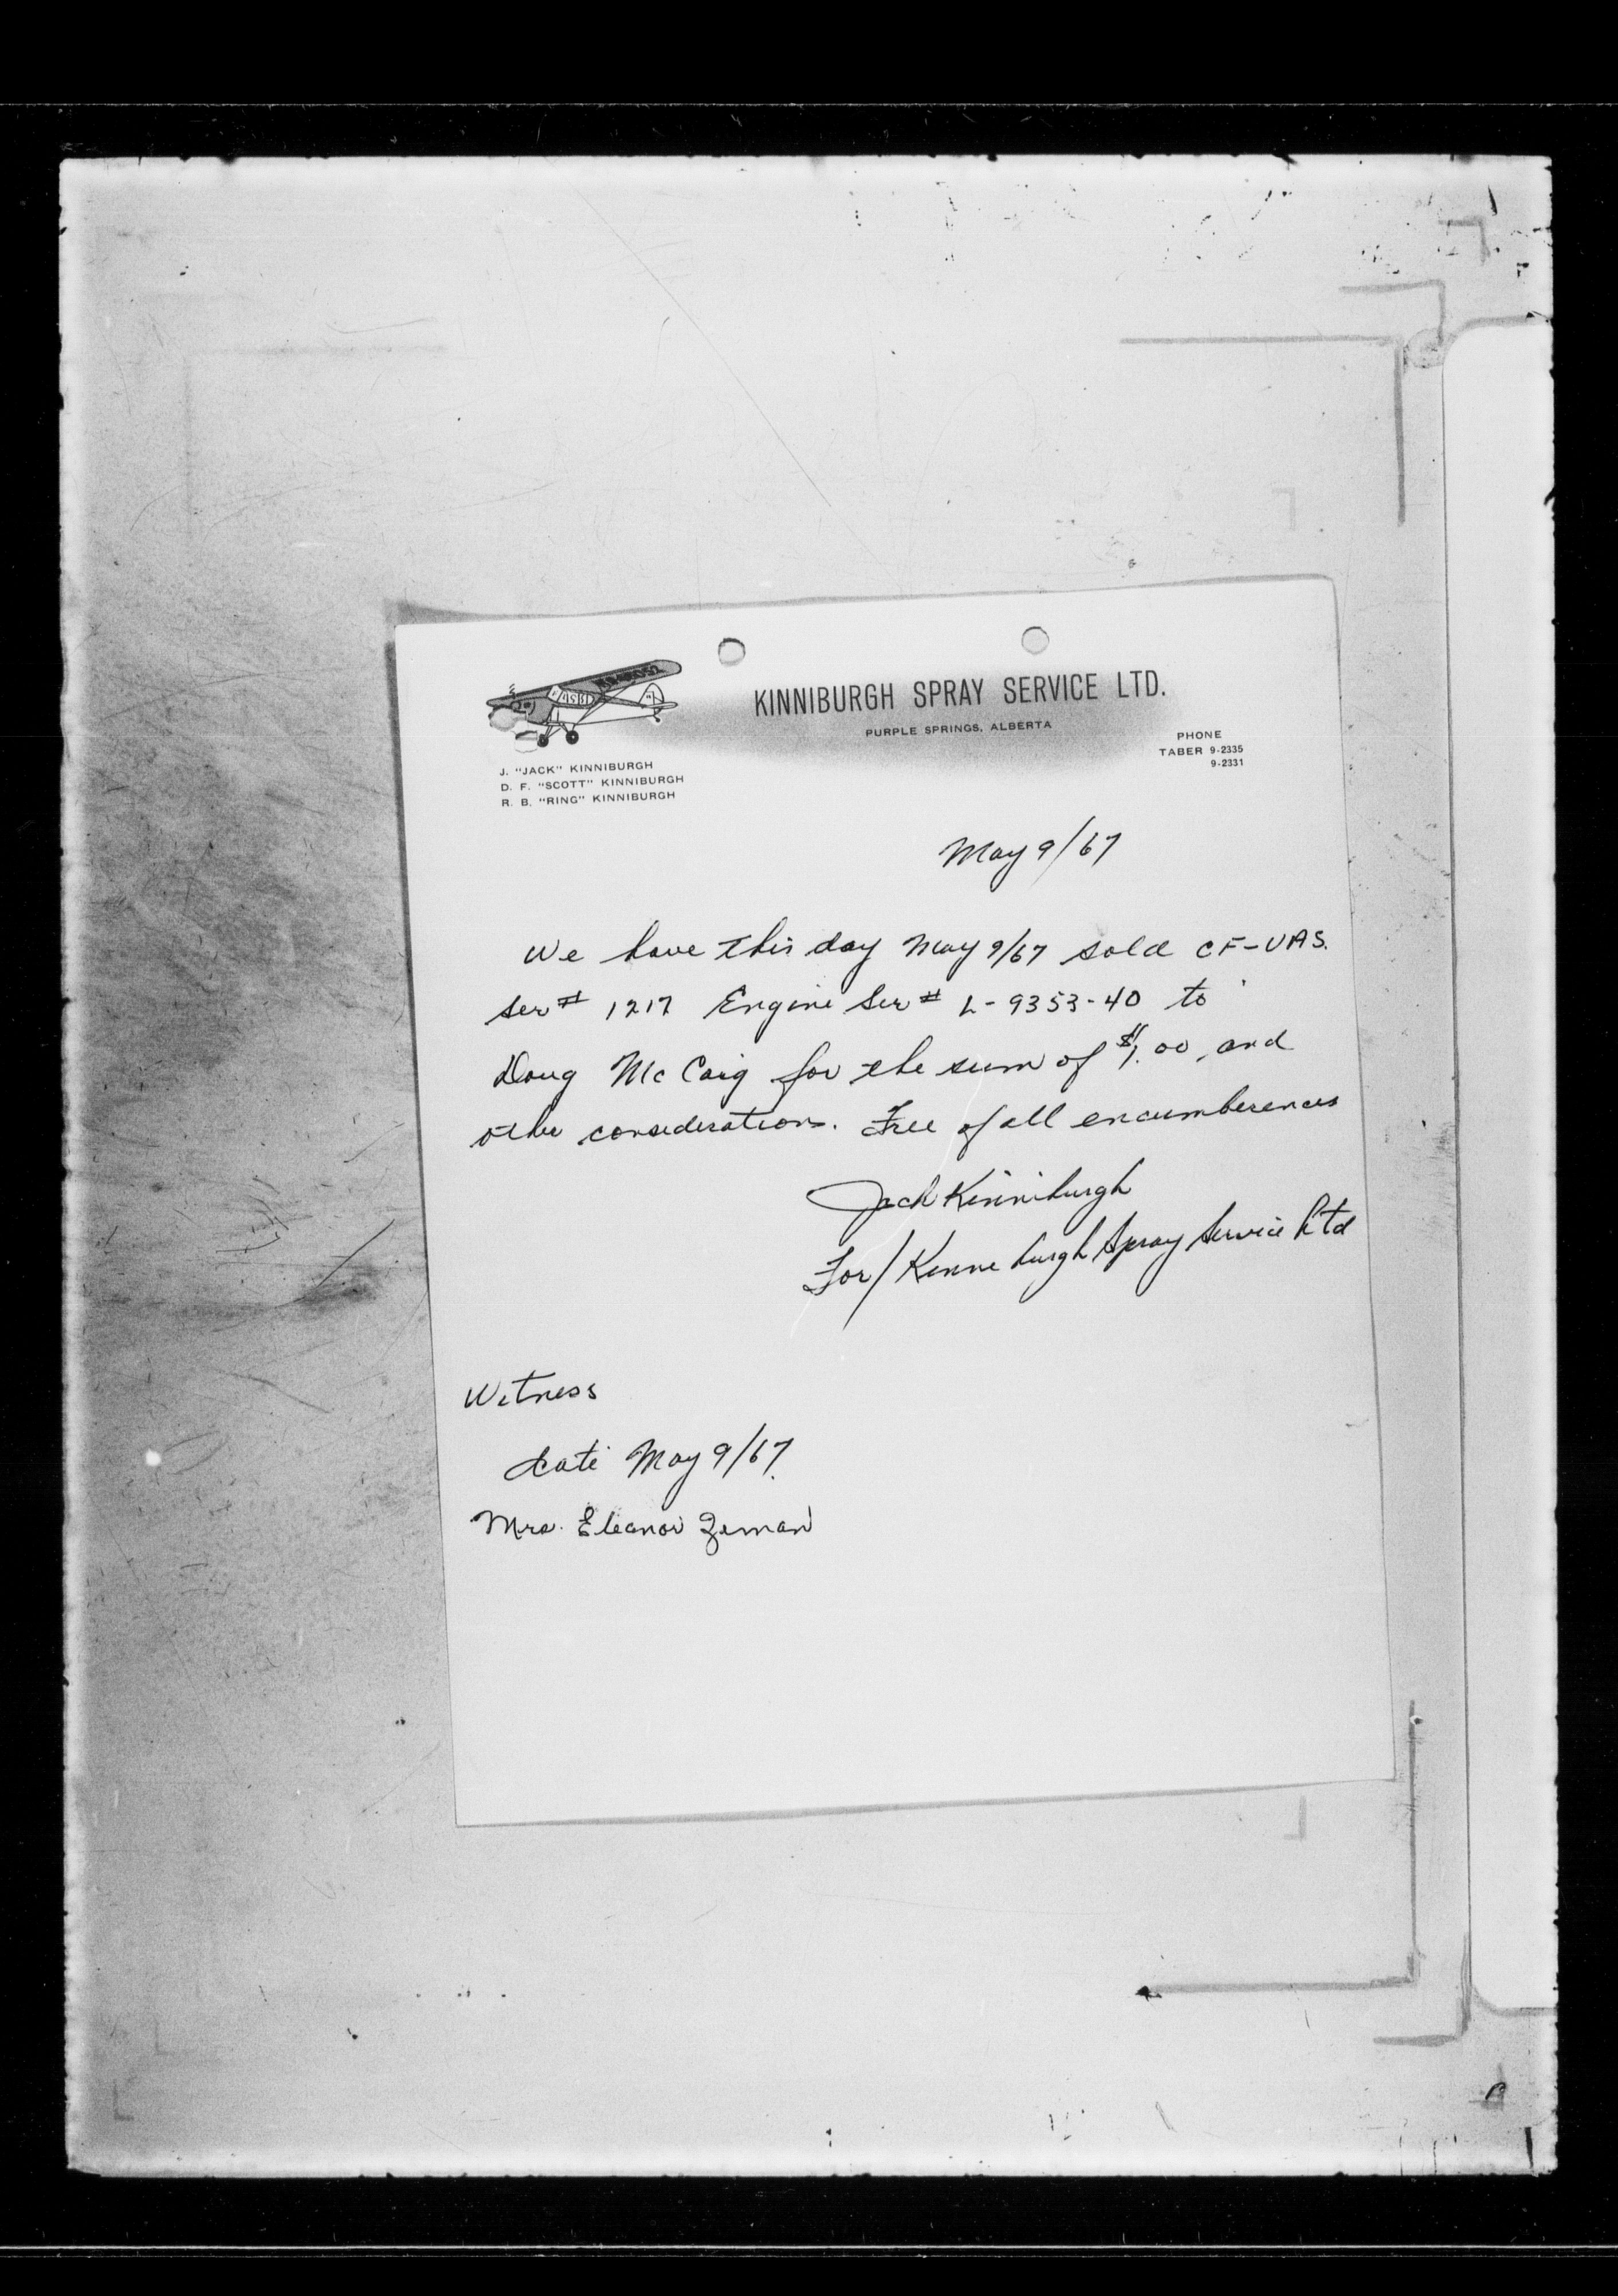 KINNIBURGH SPRAY SERVICE LTD.
PURPLE SPRINGS, ALBERTA
PHONE
TABER 9-2335
9-2331
J. "JACK" KINNIBURGH
D. F. "SCOTT" KINNIBURGH
R. B. "RING" KINNIBURGH
May 9/67
We have this day May 9/67 sold CF-VAS.
Ser# 1217 Engine Ser# L-9353-40 to
Doug McCaig for the sum of $1.00, and
other considerations. Free of all encumberences
Jack Kinniburgh
For/ Kinneburgh Spray Service Ltd
Witness
Date May 9/67.
Mrs. Eleanor Zeman